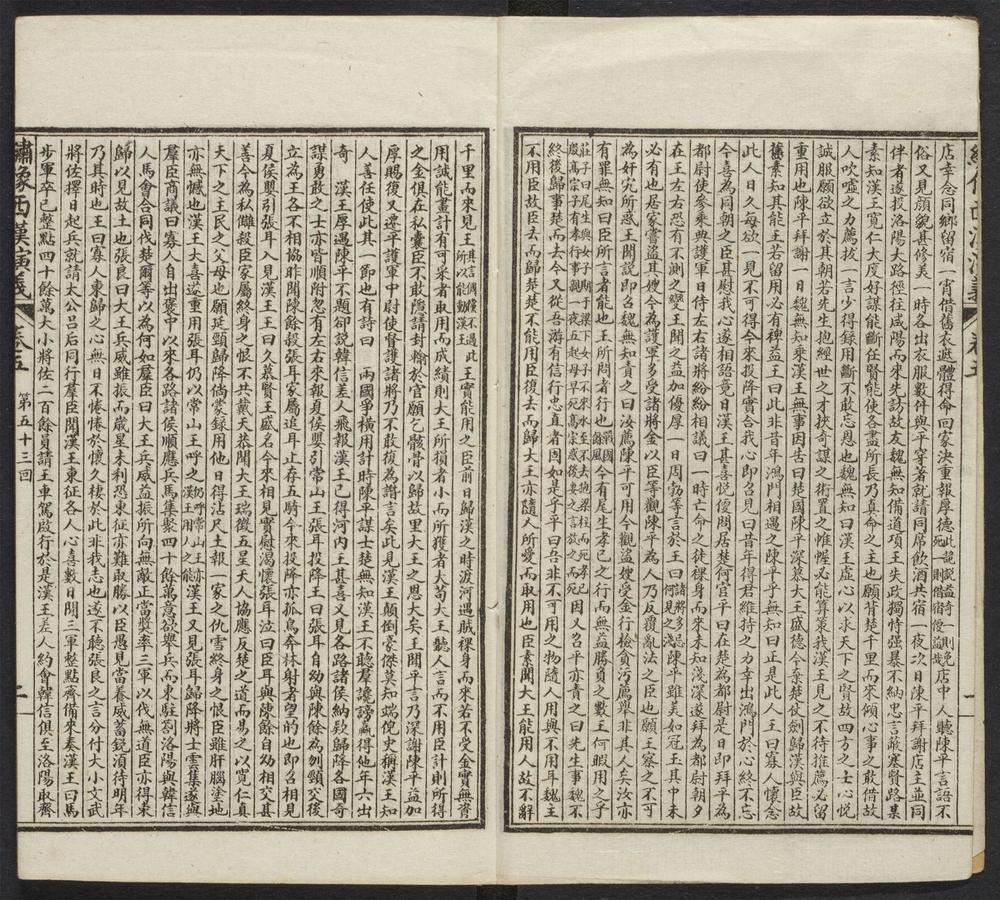 店幸念同鄉留宿一宵借舊衣遮體得命回家決重報厚德此說說盜時則免死一則借宿便益說店中人聽陳平言語不
俗又見顏貌甚修美一時各出衣服數件與平穿著就請同席飲酒共宿一夜次日陳平拜謝店主並同
伴者遂投洛陽大路徑往咸陽而來先訪故友魏無知備道項王失政獨恃强暴不納忠言蔽塞賢路某
素知漢王寬仁大度好謀能斷任賢能使各盡所長乃真命之主也願背楚千里而來傾心事之敢借故
人吹噓之力薦拔一言少得錄用斷不敢忘恩也魏無知曰漢王虛心以求天下之賢故四方之士心悅
誠服願欲立於其朝若先生抱經世之才挾奇謀之術置之帷幄必能算策我漢王見之不待推薦必留
重用也陳平拜謝一日魏無知乘漢王無事因告曰楚國陳平深慕大王盛德今棄楚仗劍歸漢與臣故
舊素知其能王若留用必有裨益王曰此非昔年鴻門相遇之陳平乎無知曰正是此人王曰寡人懷念
此人日久每欲一見不可得今來投降實合我心即召見曰昔年得君維持之力幸出鴻門於心終不忘
今喜為同朝之臣甚慰我心遂相語竟日漢王甚喜悅復問居楚何官平曰在楚為都尉是日即拜平為
都尉使參乘典護軍日侍左右諸將紛紛相議曰一時亡命之徒裸身而來未知淺深遂拜為都尉朝夕
在王左右恐有不測之變王聞之益加優厚一日周勃等言於王曰諸將多忌何見之淺陳平雖美如冠玉其中未
必有也居家嘗盜其嫂今為護軍多受諸將金以臣等觀陳平為人乃反覆亂法之臣也願王察之不可
為奸宄所惑王聞說即召魏無知責之曰汝薦陳平可用今觀盜嫂受金行檢貪污薦舉非其人矣汝亦
有罪無知曰臣所言者能也王所問者行也戰國餘風今有尾生孝已之行而無益勝負之數王何暇用之乎
莊子曰尾生與女子期于梁下女子不來水至不去抱梁柱而死孝已殷高宗子有孝行事親一夜五起母早死高宗惑後妻之言放之而死因又召平亦責之曰先生事魏不
終後歸事楚而去今又從吾游有信行忠直者固如是乎平曰吾非不可用之物隨人用與不用耳魏主
不用臣故臣去而歸楚楚不能用臣復去而歸大王亦隨人所愛而取用吾不可也臣素聞大王能用人故不辭
千里而來見王其信偶不過此所以能動漢王王實能用之臣前日歸漢之時渡河遇賊裸身而來若不受金實無資
用誠能畫計有可采者取用而成績則大王所損者小而所獲者大苟大王聽人言而不用臣計則所得
之金俱在私囊臣不敢隱請封輸於官願乞骸骨以歸故里大王之恩大矣王聞平言乃深謝陳平益加
厚賜復又遷平護軍中尉使督護諸將乃不敢復為譖言矣此見漢王顛倒豪傑莫知端倪史稱漢王知
人善任使此其一節也有詩曰 兩國爭橫用計時陳平謀士楚無知漢王不聽羣讒謗贏得他年六出
奇 漢王厚遇陳平不題卻說韓信差人飛報漢王已得河內王甚喜又見各路諸侯納欵歸降各國奇
謀勇敢之士亦皆順附忽有左右來報夏侯嬰引常山王張耳投降王曰張耳自幼與陳餘為刎頸交後
立為王各不相協昨聞陳餘殺張耳家屬追耳止存五騎今來投降亦孤鳥奔林射者望的也即召相見
夏侯嬰引張耳入見漢王王曰久慕賢王盛名今來相見實慰渴懷張耳泣曰臣耳與陳餘自幼相交甚
善今為私讎殺臣家屬終身之恨不共戴天恭聞大王瑞徵五星天人協應反楚之道而易之以寬仁真
天下之主民之父母也願延頸歸降倘蒙錄用他日得沾尺土報一家之仇雪終身之恨臣雖肝腦塗地
亦無憾也漢王大喜遂重用張耳仍以常山王呼之仍呼常山王亦漢王用人之能漢王又見張耳歸降將士雲集遂與
羣臣商議曰寡人自出褒中以來各路諸侯順應兵馬集聚四十餘萬意欲舉兵而東駐劄洛陽與韓信
人馬會合同伐楚爾等以為何如羣臣曰大王兵威益振所向無敵正當奬率三軍以伐無道臣亦得東
歸以見故土也張良曰大王兵威雖振而歲星未利恐東征亦難取勝以臣愚見當養威蓄銳須待明年
乃其時也王曰寡人東歸之心無日不惓惓於懷久棲於此非我志也遂不聽張良之言分付大小文武
將佐擇日起兵就請太公呂后同行羣臣聞漢王東征各人心喜數日間三軍整點齊備來奏漢王曰馬
步軍卒已整點四十餘萬大小將佐二百餘員請王車駕啟行於是漢王差人約會韓信俱至洛陽取齊
繡像西漢演義 卷五 第五十三回 二